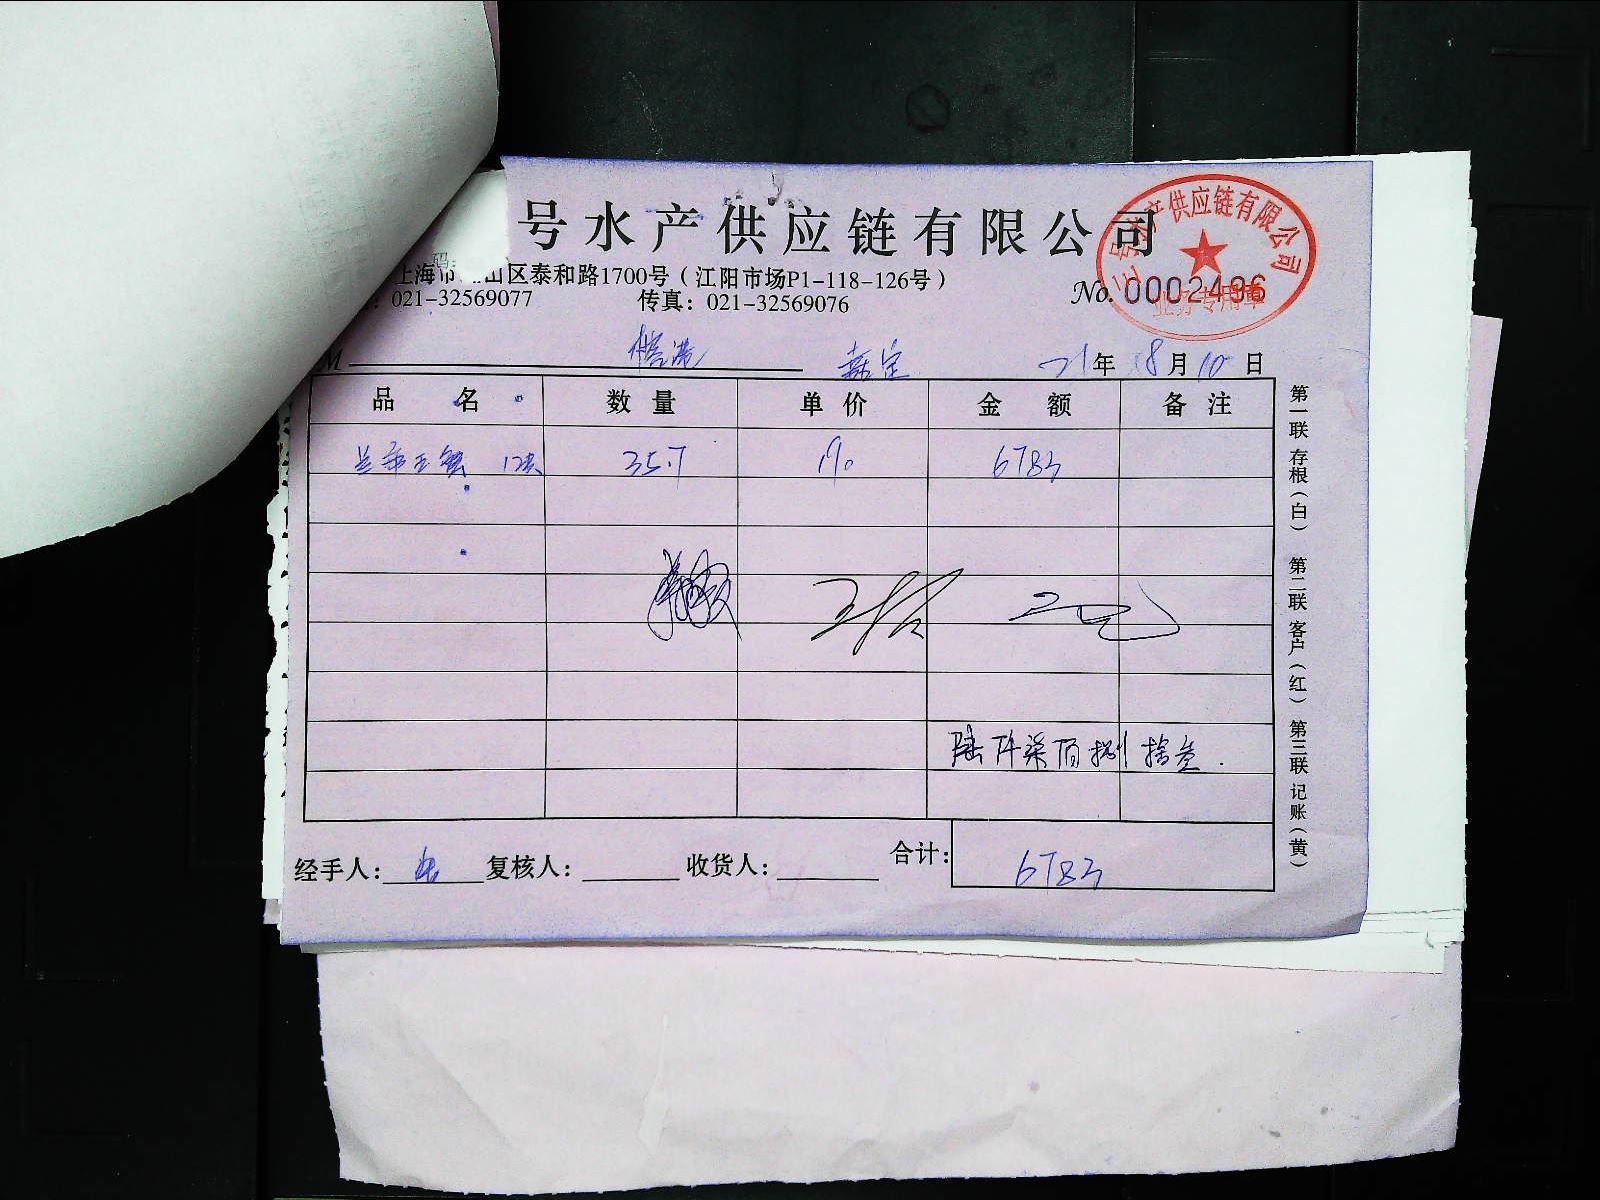 号水产供应链有限公司
上海市 山区泰和路1700号（江阳市场P1-118-126号）
：021-32569077 传真：021-32569076
No. 0002496
号水产供应链有限公司
业务专用章
M 嘉定 21年 8月10日
品名 数量 单价 金额 备注
35.7 190 6783
陆仟柒佰捌拾叁.
经手人： 复核人： 收货人： 合计：6783
第一联 存根（白） 第二联 客户（红） 第三联 记账（黄）